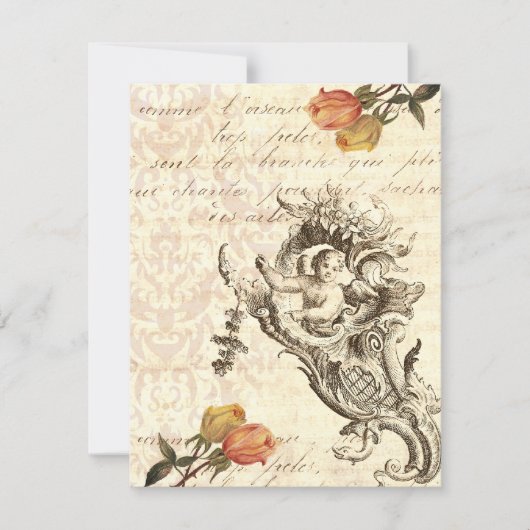 comme l'oiseau
trop peles,
sent la branche qui pli
que chantes pourtant, sacha
des ailes
comme au
peles,